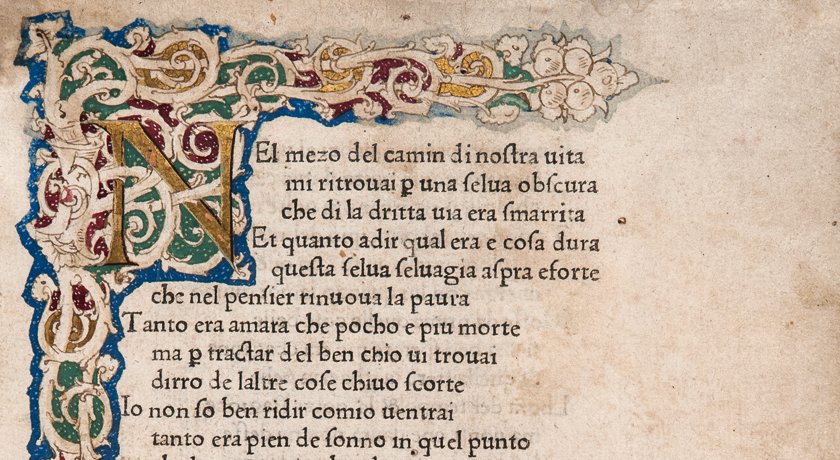 NEl mezo del camin di noſtra uita
mi ritrouai ꝑ una ſelua obſcura
che di la dritta uia era ſmarrita
Et quanto adir qual era e coſa dura
queſta ſelua ſeluagia aſpra eforte
che nel penſier rinuoua la paura
Tanto era amara che pocho e piu morte
ma ꝑ tractar del ben chio ui trouai
dirro de laltre coſe chiuo ſcorte
Io non ſo ben ridir comio uentrai
tanto era pien de ſonno in quel punto